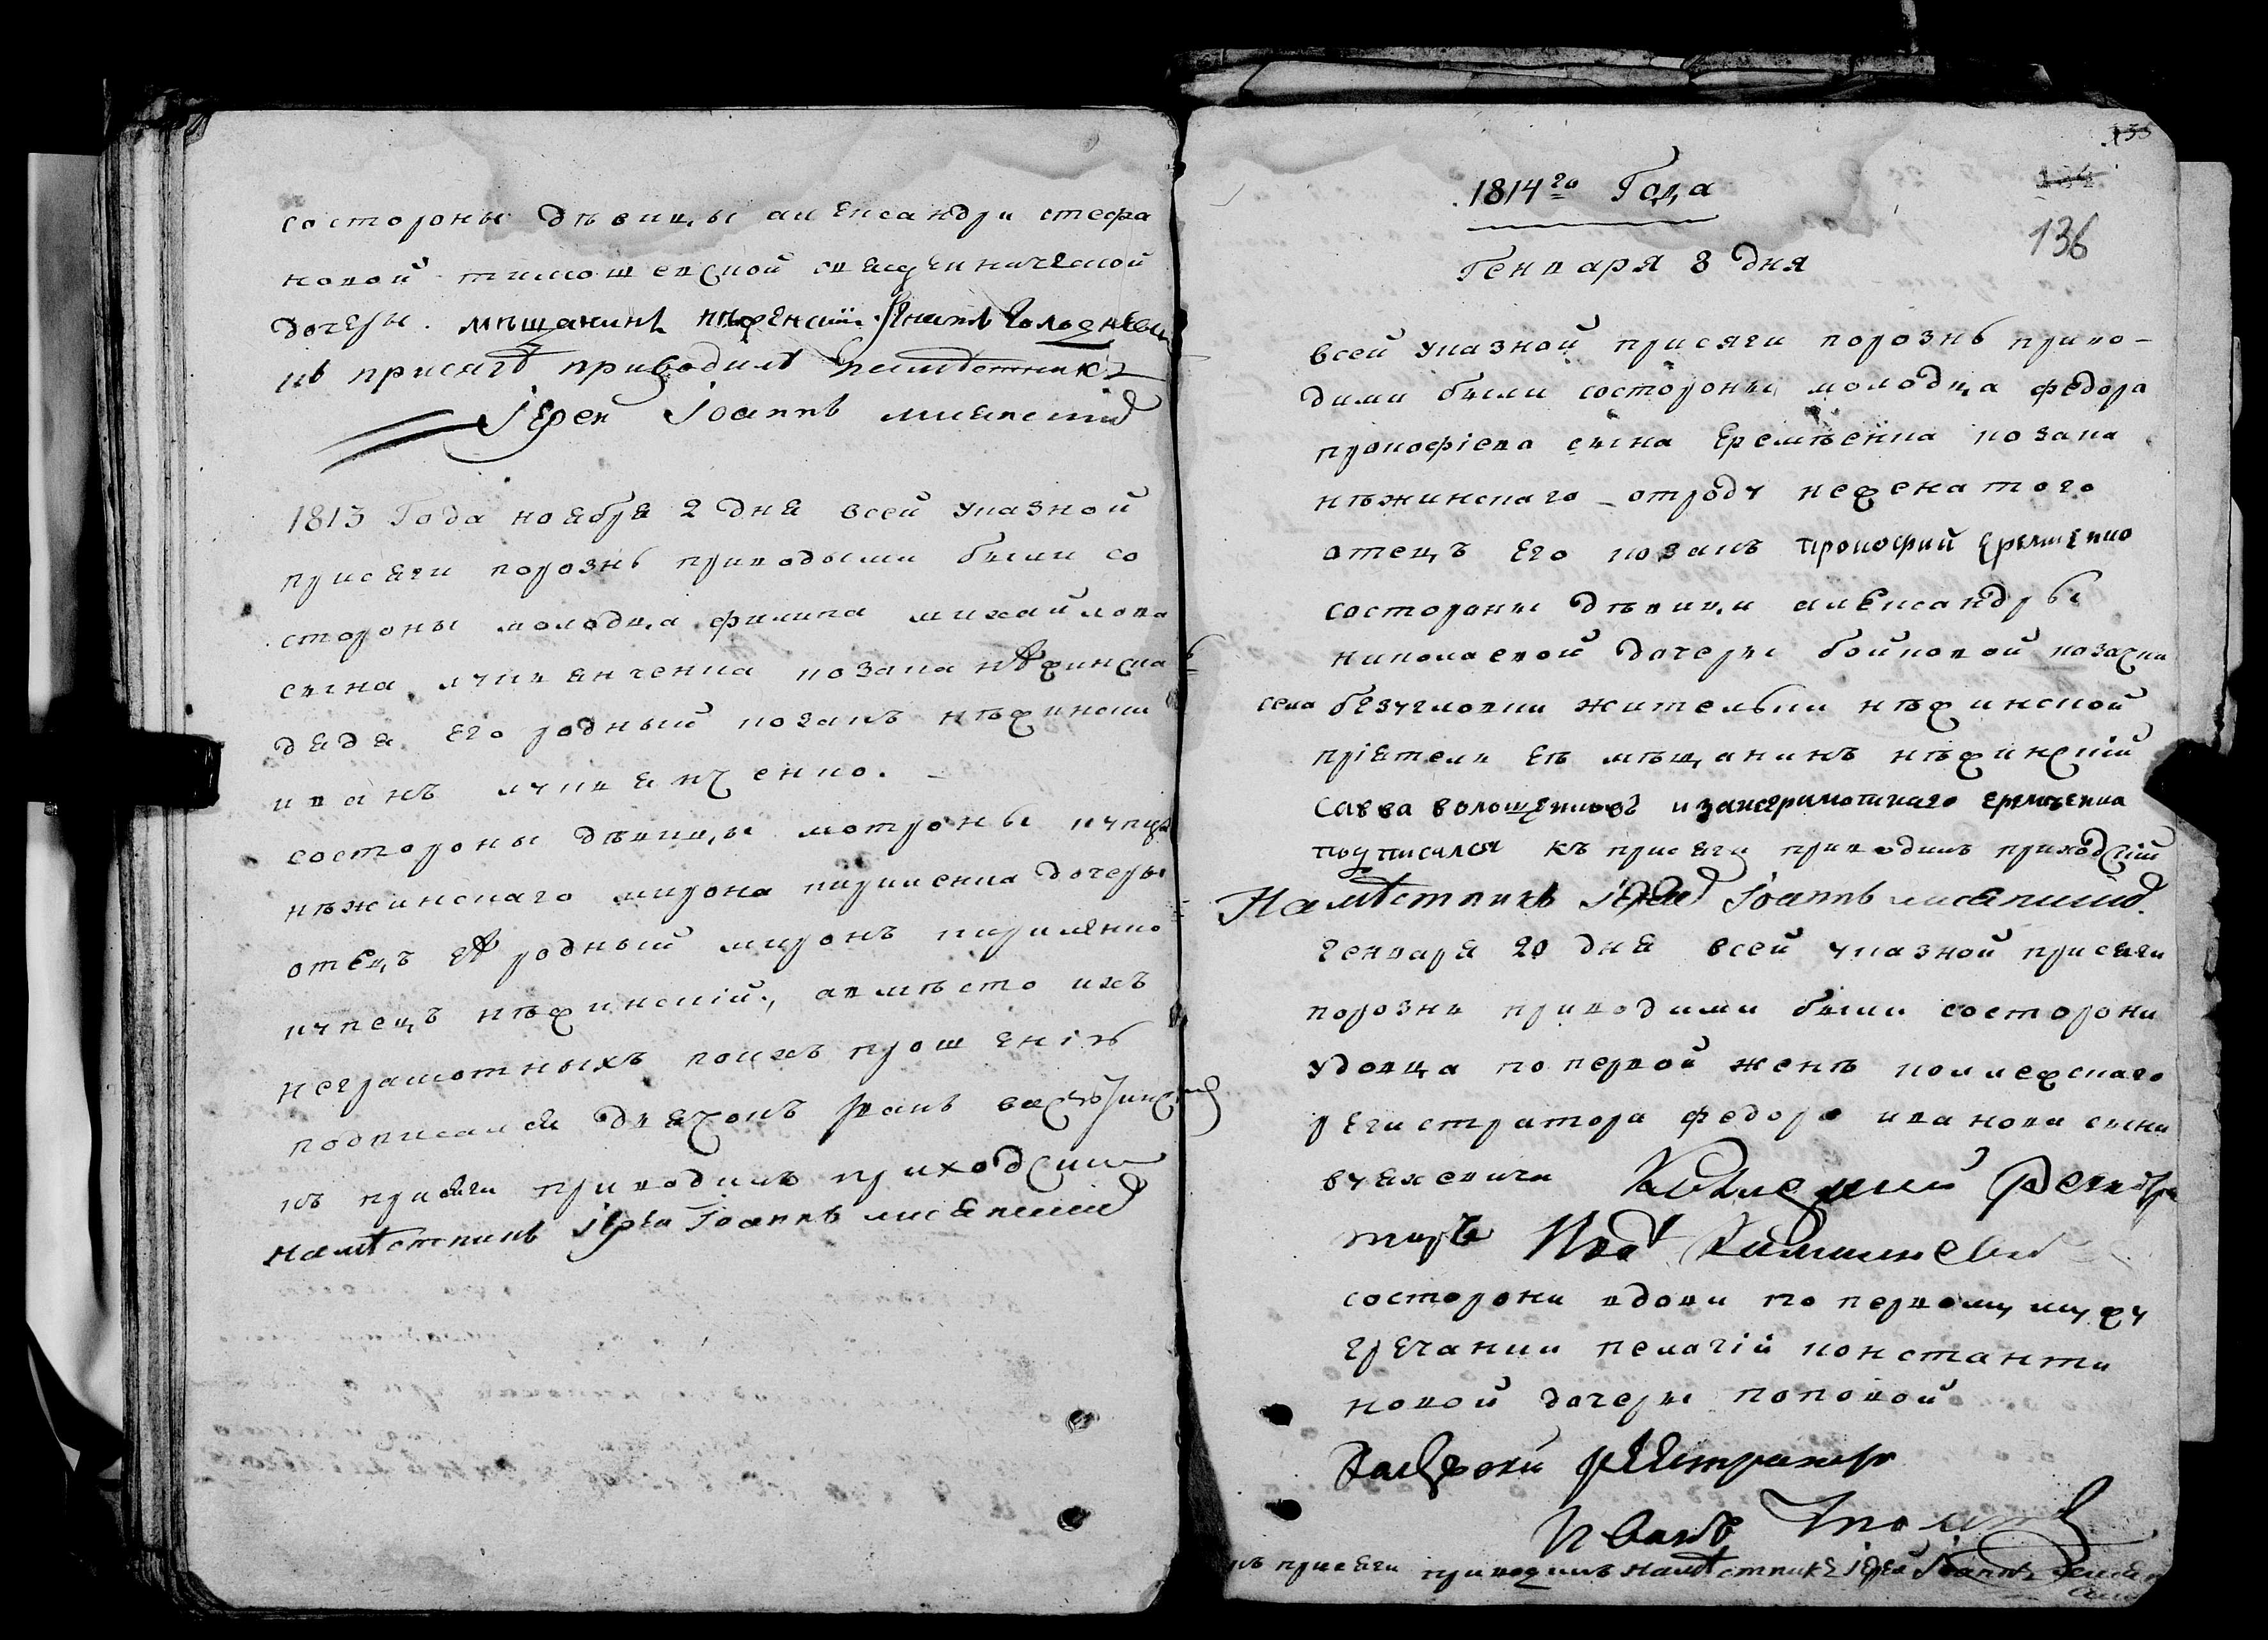 состороны дѣвицы александри стефа
новой тимошевской священнической
дочеры. мѣщанинъ нѣженскій
къ присягѣ приводилъ намѣстникъ
іерей Іоаннъ
1813 Года ноября 2 дня всей указной
присяги порознь приводыми были со
стороны молодца филипа михайлова
сына лукъянченка козака нѣжинска
дядя его родный козакъ нѣжински
иванъ лукъянченко.
состороны дѣвицы мотроны купца
нѣжинскаго мирона кириленка дочеры
отецъ еѣ родный миронъ кириленко
купецъ нѣжинскій, авмѣсто ихъ
неграмотныхъ поихъ прошенію
подписался дьячокъ
къ присяги приводилъ приходскии
намѣстникъ іерей Іоаннъ
135
134
136
1814го Года
Генваря 8 дня
всей указной присяги порознь приво-
дими были состороны молодца федора
прокофіева сына Еремѣенка козака
нѣжинскаго отроду нежена того
отецъ Его козакъ прокофий Еремѣенко
состороны дѣвици александры
николаевой дочеры бойковой козачки
села безугловки жительки нѣжинской
пріятель еѣ мѣщанинъ нѣжинскій
Савва волошениновъ изанеграмотнаго еремѣенка
подписался къ присяги приводилъ приходскій
Намѣстникъ іерей Іоаннъ
генваря 20 дня всей указной присяги
порознь приводими были состорони
удовца по первой женѣ коллежскаго
регистратора федора иванова сына
Колежский Регистра
торъ
состорони вдови по первому мужу
гречанки пелагіи константи
новой дочеры поповой
регистраторъ
Иванъ
къ присяги приводилъ намѣстникъ іерей Іоаннъ